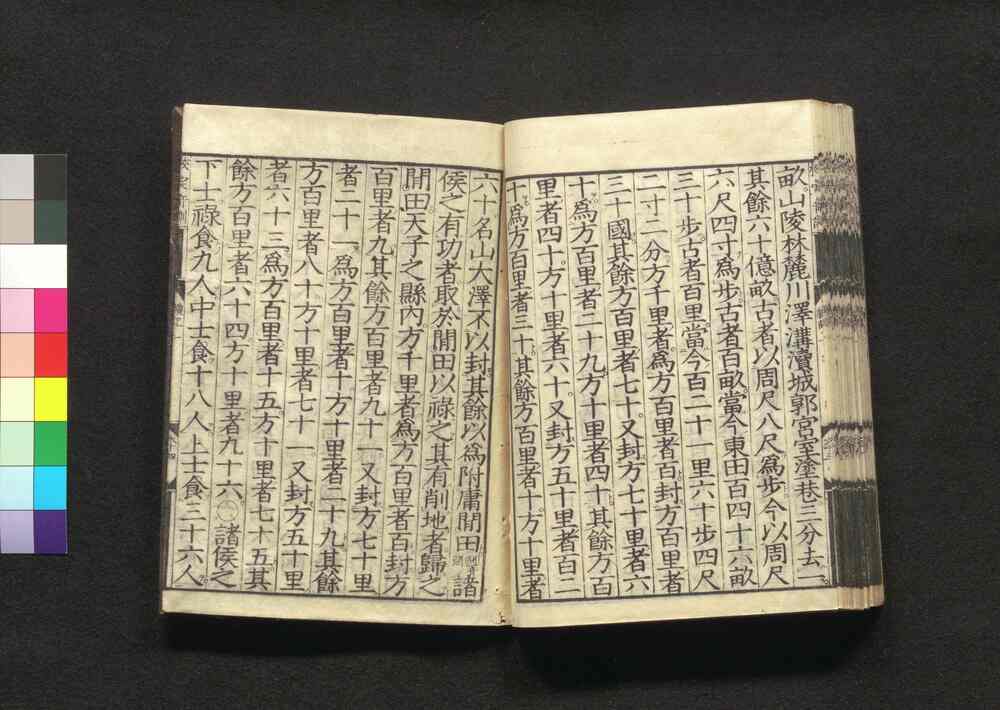 畝山陵林麓川澤溝瀆城郭宮室塗巷三分去一
其餘六十億畝古者以周尺八尺爲步今以周尺
六尺四寸爲步古者百畝當今東田百四十六畝
三十步古者百里當今百二十一里六十步四尺
二寸二分方千里者爲方百里者百封方百里者
三十國其餘方百里者七十又封方七十里者六
十爲方百里者二十九方十里者四十其餘方百
里者四十方十里者六十又封方五十里者百二
十爲方百里者三十其餘方百里者十方十里者
六十名山大澤不以封其餘以爲附庸閒田諸
侯之有功者取於閒田以祿之其有削地者歸之
閒田天子之縣內方千里者爲方百里者百封方
百里者九其餘方百里者九十一又封方七十里
者二十一爲方百里者十方十里者二十九其餘
方百里者八十方十里者七十一又封方五十里
者六十三爲方百里者十五方十里者七十五其
餘方百里者六十四方十里者九十六○諸侯之
下士祿食九人中士食十八人上士食三十六人